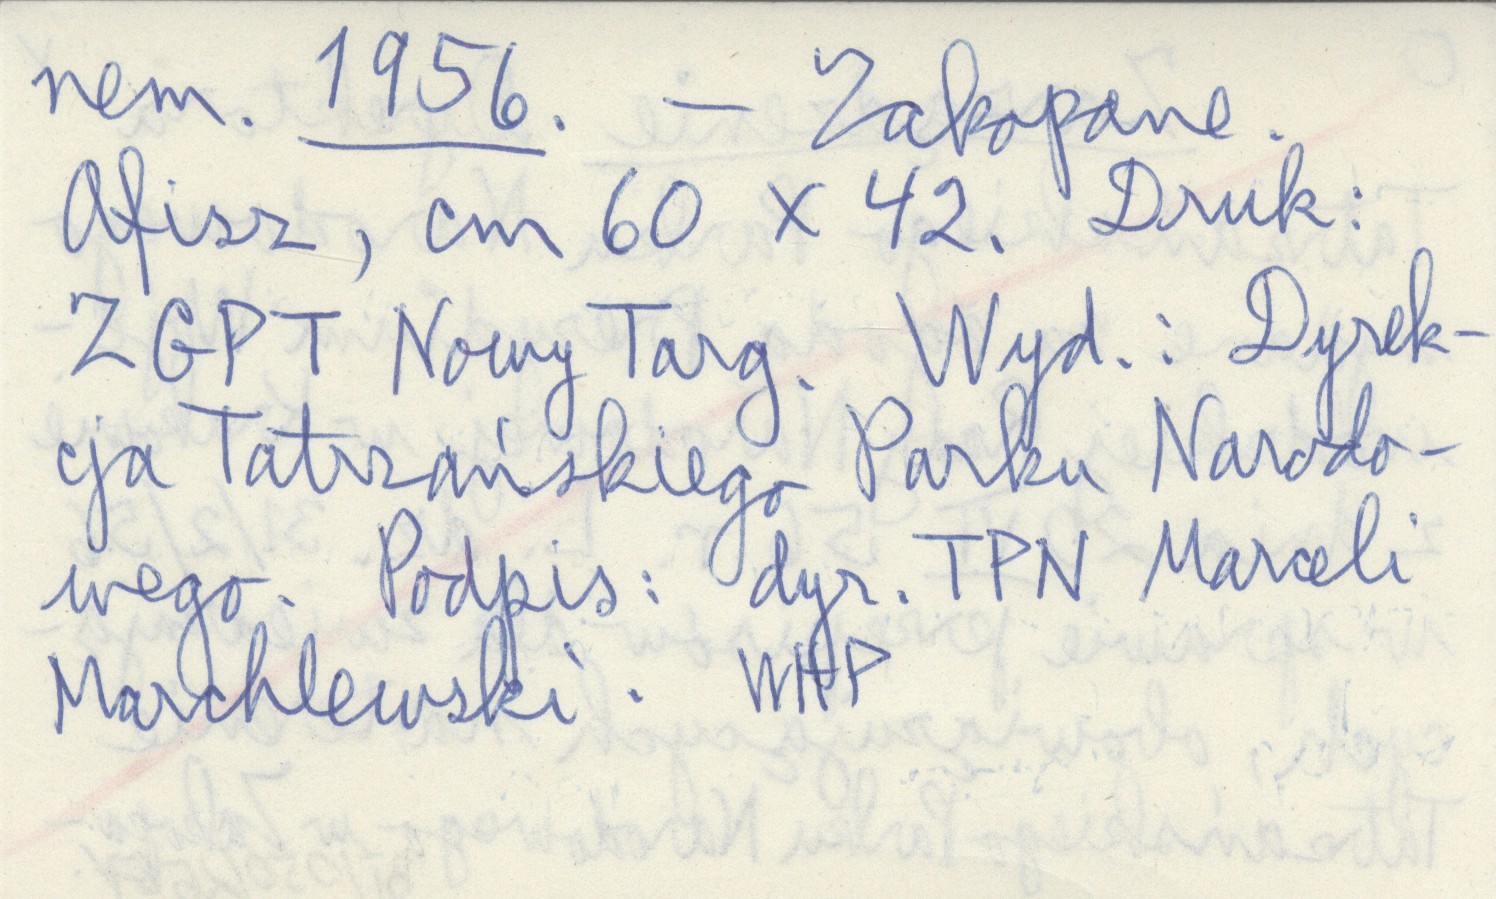 nem. 1956. — Zakopane.
Afisz, cm 60 x 42. Druk:
ZGPT Nowy Targ. Wyd.: Dyrek-
cja Tatrzańskiego Parku Narodo-
wego. Podpis: dyr. TPN Marceli
Marchlewski. WHP